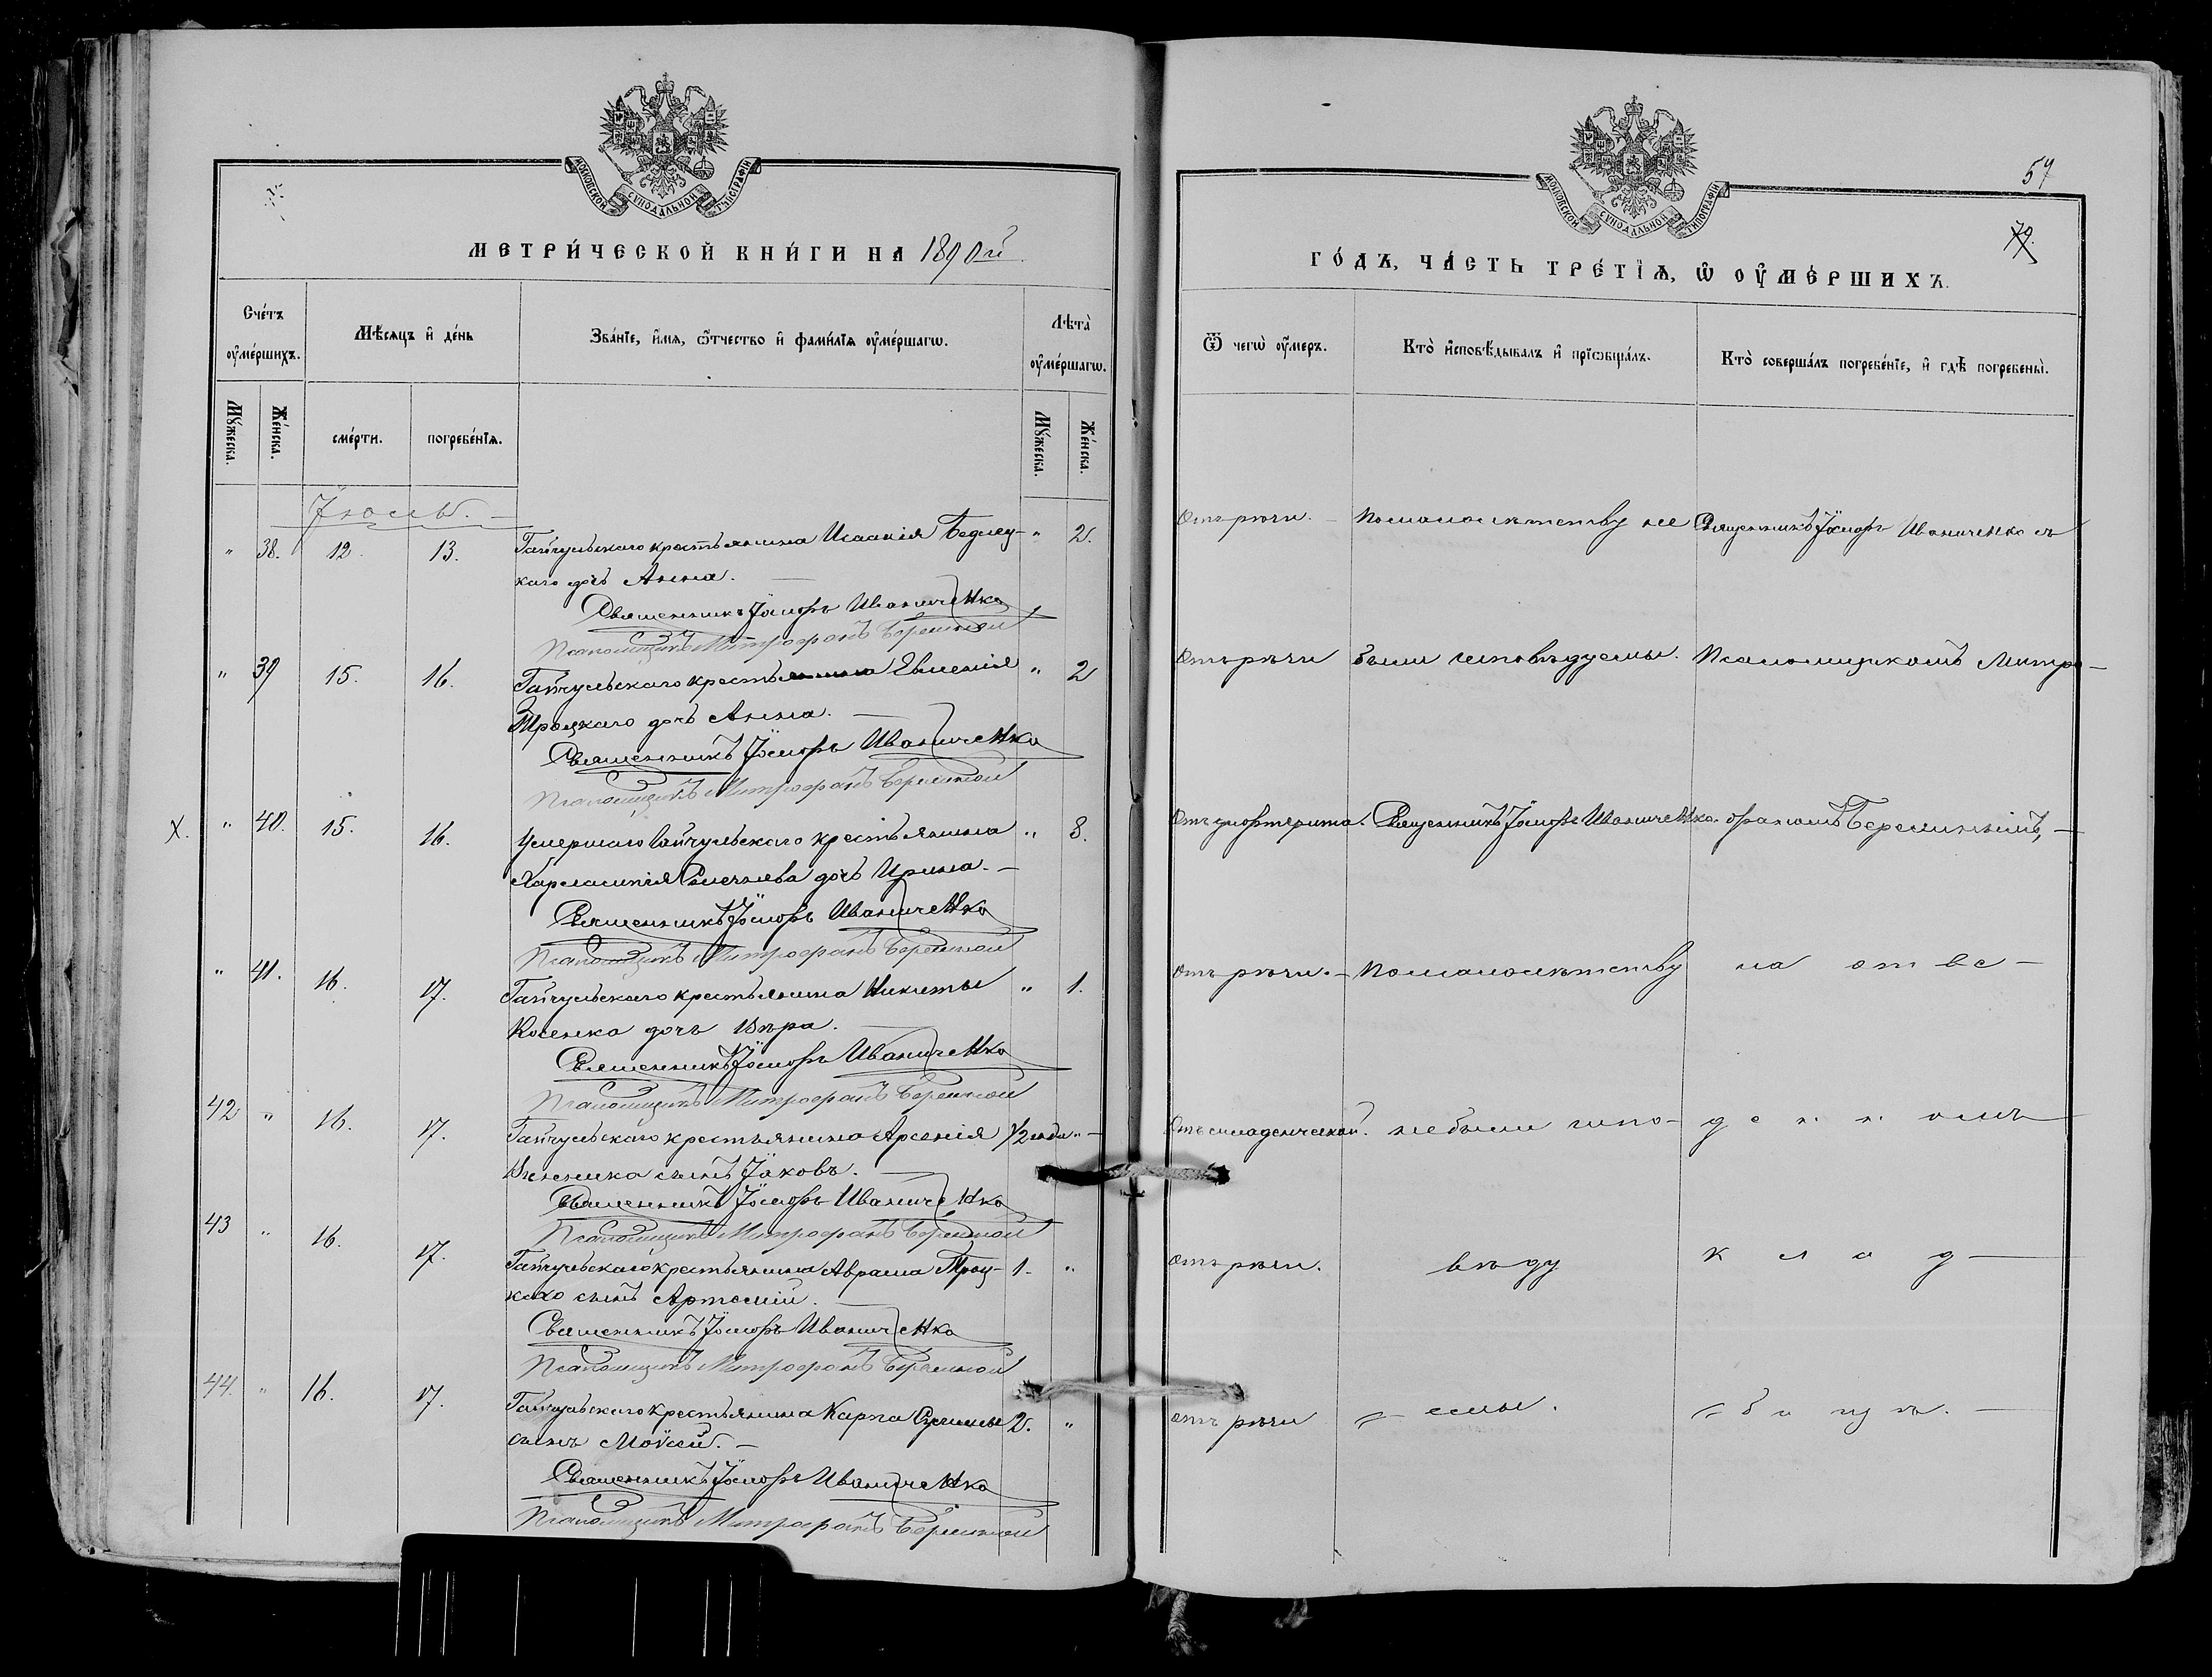 МОСКОВСКОЙ СУНОДАЛЬНОЙ ТУПОГРАФІИ
МЕТРИ́ЧЕСКОЙ КНИ́ГИ НА 1890 й
Счéтъ оу҆ме́ршихъ.
Мѣ́сяцъ и҆ де́нь
Зва́нїе, и҆́мѧ, ѻ҆́тчество и҆ фами́лїѧ оу҆ме́ршагѡ.
Лѣта̀ оу҆ме́ршагѡ.
Мꙋ́жеска.
Же́нска.
сме́рти.
погребе́нїѧ.
Мꙋ́жеска.
Же́нска.
Іюль.
" 38. 12. 13. Гайчульскаго крестьянина Исаакія
каго дочь Анна. " 2.
Священникъ Іосифъ Иваниченко
Псаломщикъ Митрофанъ Бережной
" 39 15. 16. Гайчульскаго крестьянина Евменія " 2
Троцкаго дочь Анна.
Священникъ Іосифъ Иваниченко
Псаломщикъ Митрофанъ Бережной
X. " 40. 15. 16. Умершаго Гайчульскаго крестьянина " 8.
Харлампія дочь Ирина.
Священникъ Іосифъ Иваниченко
Псаломщикъ Митрофанъ Бережной
" 41. 16. 17. Гайчульскаго крестьянина Никиты " 1.
Косенка дочь Вѣра.
Священникъ Іосифъ Иваниченко
Псаломщикъ Митрофанъ Бережной
42 " 16. 17. Гайчульскаго крестьянина Арсенія 1/2 года "
сынъ Іаковъ.
Священникъ Іосифъ Иваниченко
Псаломщикъ Митрофанъ Бережной
43 " 16. 17. Гайчульскаго крестьянина Аврама Троц- 1. "
каго сынъ Артемій.
Священникъ Іосифъ Иваниченко
Псаломщикъ Митрофанъ Бережной
44. " 16. 17. Гайчульскаго крестьянина Карпа 2. "
сынъ Моѵсей.
Священникъ Іосифъ Иваниченко
Псаломщикъ Митрофанъ Бережной
МОСКОВСКОЙ СУНОДАЛЬНОЙ ТИПОГРАФІИ
57
70.
ГО́ДЪ, ЧА́СТЬ ТРЕ́ТЇѦ, Ѡ҆ ОУ҆МЕ́РШИХЪ.
Ѿ чегѡ̀ оу҆́меръ.
Кто̀ и҆сповѣ́дывалъ и҆ прїѡбща́лъ.
Кто̀ соверша́лъ погребе́нїе, и҆ гдѣ̀ погребены̀.
Отъ рѣчи. По малолѣтству не Священникъ Іосифъ Иваниченко съ
Отъ рѣчи были исповѣдуемы. Псаломщикомъ Митро-
Отъ дифтерита. Священникъ Іосифъ Иваниченко. фаномъ Бережнымъ,
Отъ рѣчи. По малолѣтству на отве-
Отъ младенческой. не были испо- денномъ
Отъ рѣчи. вѣду клад-
Отъ рѣчи емы. бищѣ.